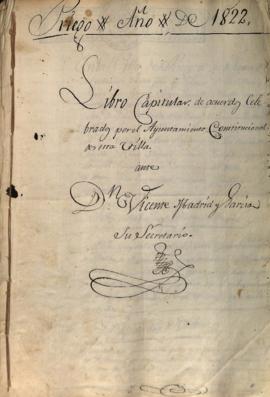 Priego Año DE 1822.
Libro Capitular de acuerdos Cele
brados por el Ayuntamiento Constitucional
de esta Villa.
ante
Dn. Vicente Madrid y Garcia
Su Secretario.